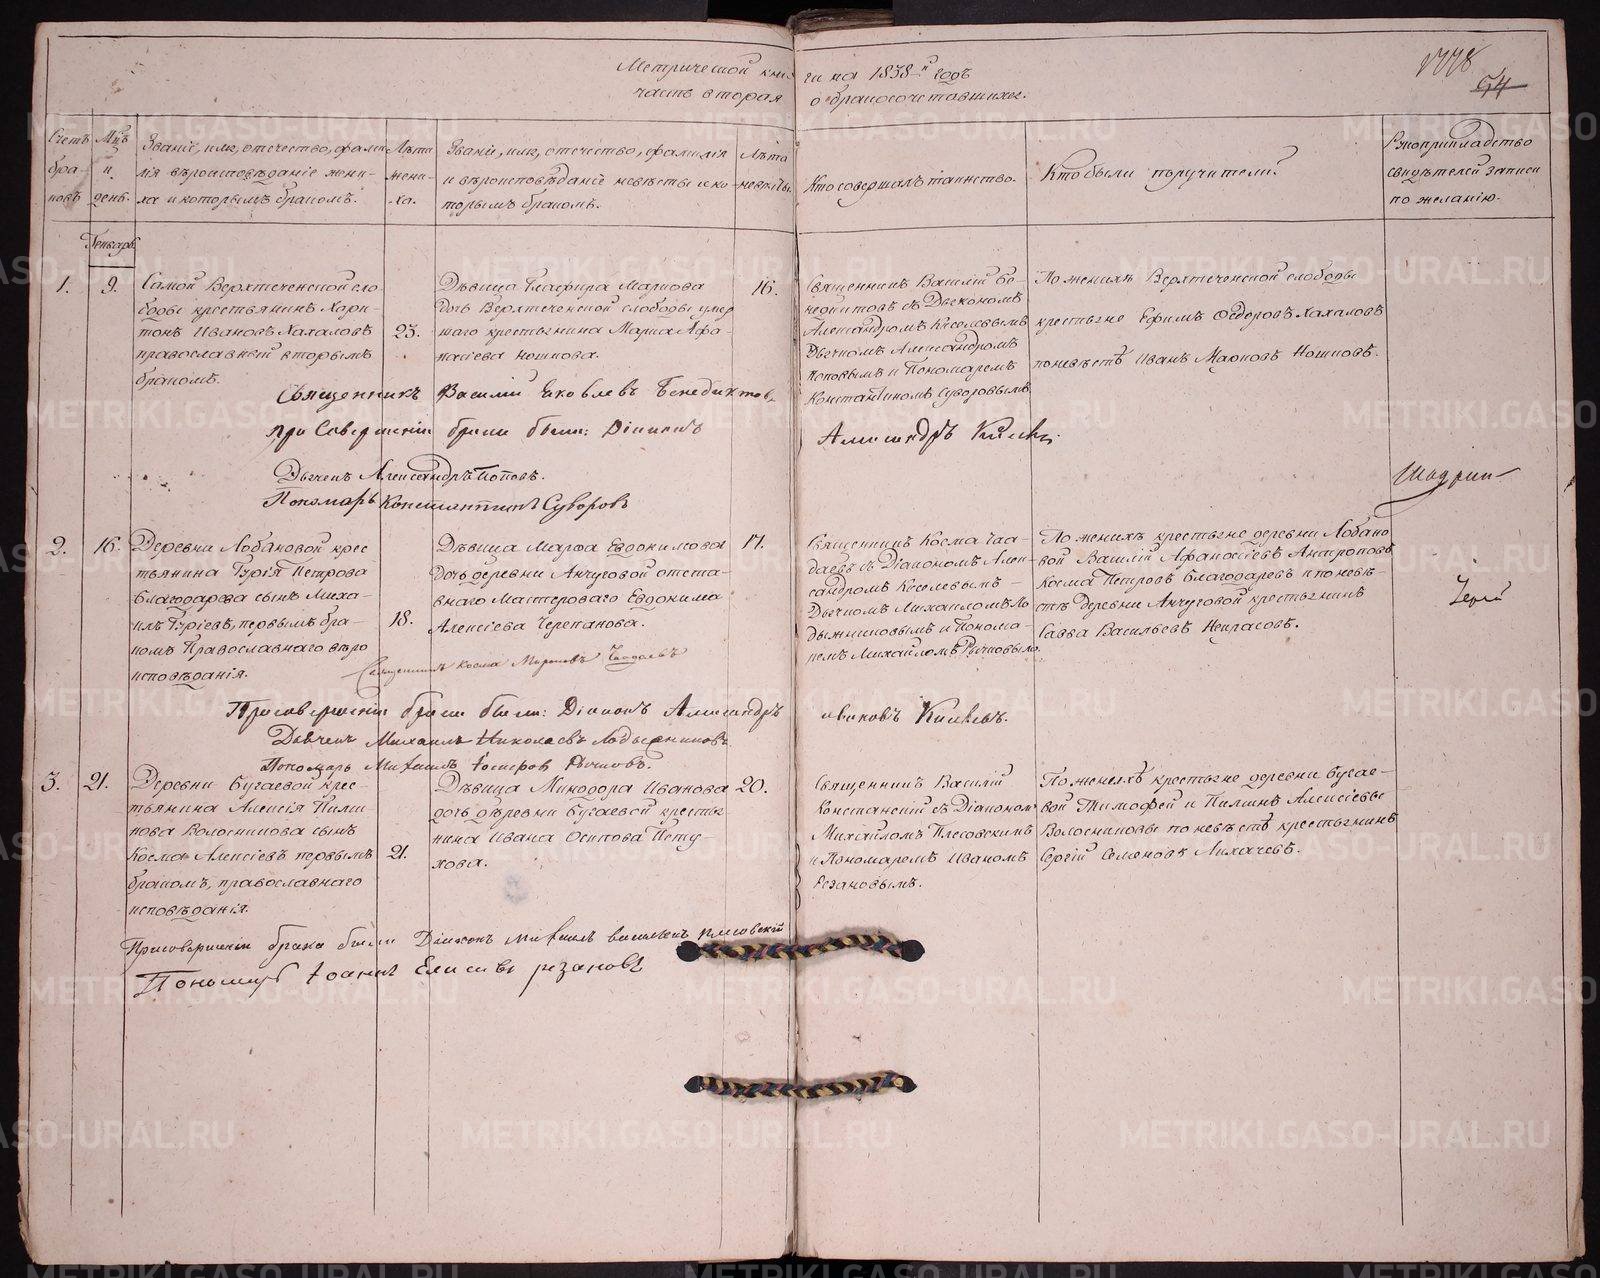 Метрической книги на 1838-й годъ
часть вторая о бракосочетавшихся.
1778
54
Счетъ браковъ
Мцъ и день.
Званіе, имя, отечество, фамилія и вѣроисповѣданіе жениха и которымъ бракомъ.
Лѣта жениха.
Званіе, имя, отечество, фамилія и вѣроисповѣданіе невѣсты и которымъ бракомъ.
Лѣта невѣсты.
Кто совершалъ таинство.
Кто были поручители.
Рукоприкладство свидѣтелей записи по желанію.
Генварь
1.
9.
Самой Верхтеченской сло
боды крестьянинъ Хари-
тонъ Ивановъ Хахаловъ
православный вторымъ
бракомъ.
23.
Дѣвица Глафира Маркова
дочь Верхтеченской слободы умер
шаго крестьянина Марка Афа-
насіева Ношкова.
16.
Священникъ Василій Бе-
недиктовъ съ Дьякономъ
Александромъ Киселевымъ
Дьячкомъ Александромъ
Поповымъ и Пономаремъ
Константиномъ Суворовымъ
По женихѣ Верхтеченской слободы
крестьяне Ефимъ Федоровъ Хахаловъ
по невѣстѣ Иванъ Марковъ Ношковъ.
Священникъ Василій Яковлевъ Бенедиктовъ
При Совершеніи брака были: Діаконъ Александръ
Дьячекъ Александръ Поповъ.
Пономарь Константинъ Суворовъ
Шадрин
2.
16.
Деревни Лобановой крес
тьянина Гурія Петрова
Благодарева сынъ Миха-
илъ Гуріевъ, первымъ бра-
комъ Православнаго вѣро
исповѣданія.
18.
Дѣвица Марфа Евдокимова
дочь деревни Анчуговой отста-
внаго Мастероваго Евдокима
Алексіева Черепанова.
17.
Священникъ Косма Чаа-
даевъ съ Діакономъ Алек-
сандромъ Киселевымъ -
Дьячкомъ Михаиломъ Ло
дыжниковымъ и Понома-
ремъ Михайломъ Рычковымъ.
По женихѣ крестьяне деревни Лобано
вой Василій Афанасіевъ Антроповъ
Косма Петровъ Благодаревъ и по невѣ-
стѣ деревни Анчуговой крестьянинъ
Савва Васильевъ Некрасовъ.
Священникъ Косма Мироновъ Чаадаевъ
При совершеніи брака были: Діаконъ Александръ
Дьячекъ Михаилъ Николаевъ Лодыжниковъ
Пономарь Михаилъ Рычковъ.
3.
21.
Деревни Бугаевой крес-
тьянина Алексія Фили
пова Волосникова сынъ
Косма Алексіевъ первымъ
бракомъ, православнаго
исповѣданія.
21.
Дѣвица Минодора Иванова
дочь деревни Бугаевой кресть
нина Ивана Осипова Пету
хова.
20.
Священникъ Василій
Констанскій съ Діакономъ
Михайломъ Плесовскимъ
и Пономаремъ Иваномъ
Резановымъ.
По женихѣ крестьяне деревни Бугае-
вой Тимофей и Филипъ Алексіевы
Волосниковы по невѣстѣ крестьянинъ
Сергій Семеновъ Лихачевъ.
При совершеніи брака были Діаконъ Михаилъ Васильевъ Плесовскій
Пономарь Іоаннъ Елисѣевъ Резановъ